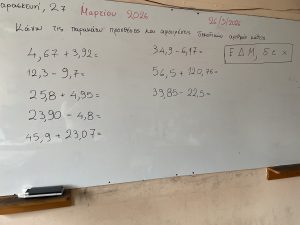 Παρασκευή, 27 Μαρτίου 2026
26/3/2026
Κάνω τις παρακάτω προσθέσεις και αφαιρέσεις δεκαδικών αριθμών κάθετα
4,67 + 3,92 =
34,9 - 6,17 =
12,3 - 9,7 =
56,5 + 120,76 =
25,8 + 4,95 =
39,85 - 22,5 =
23,90 - 4,8 =
45,9 + 23,07 =